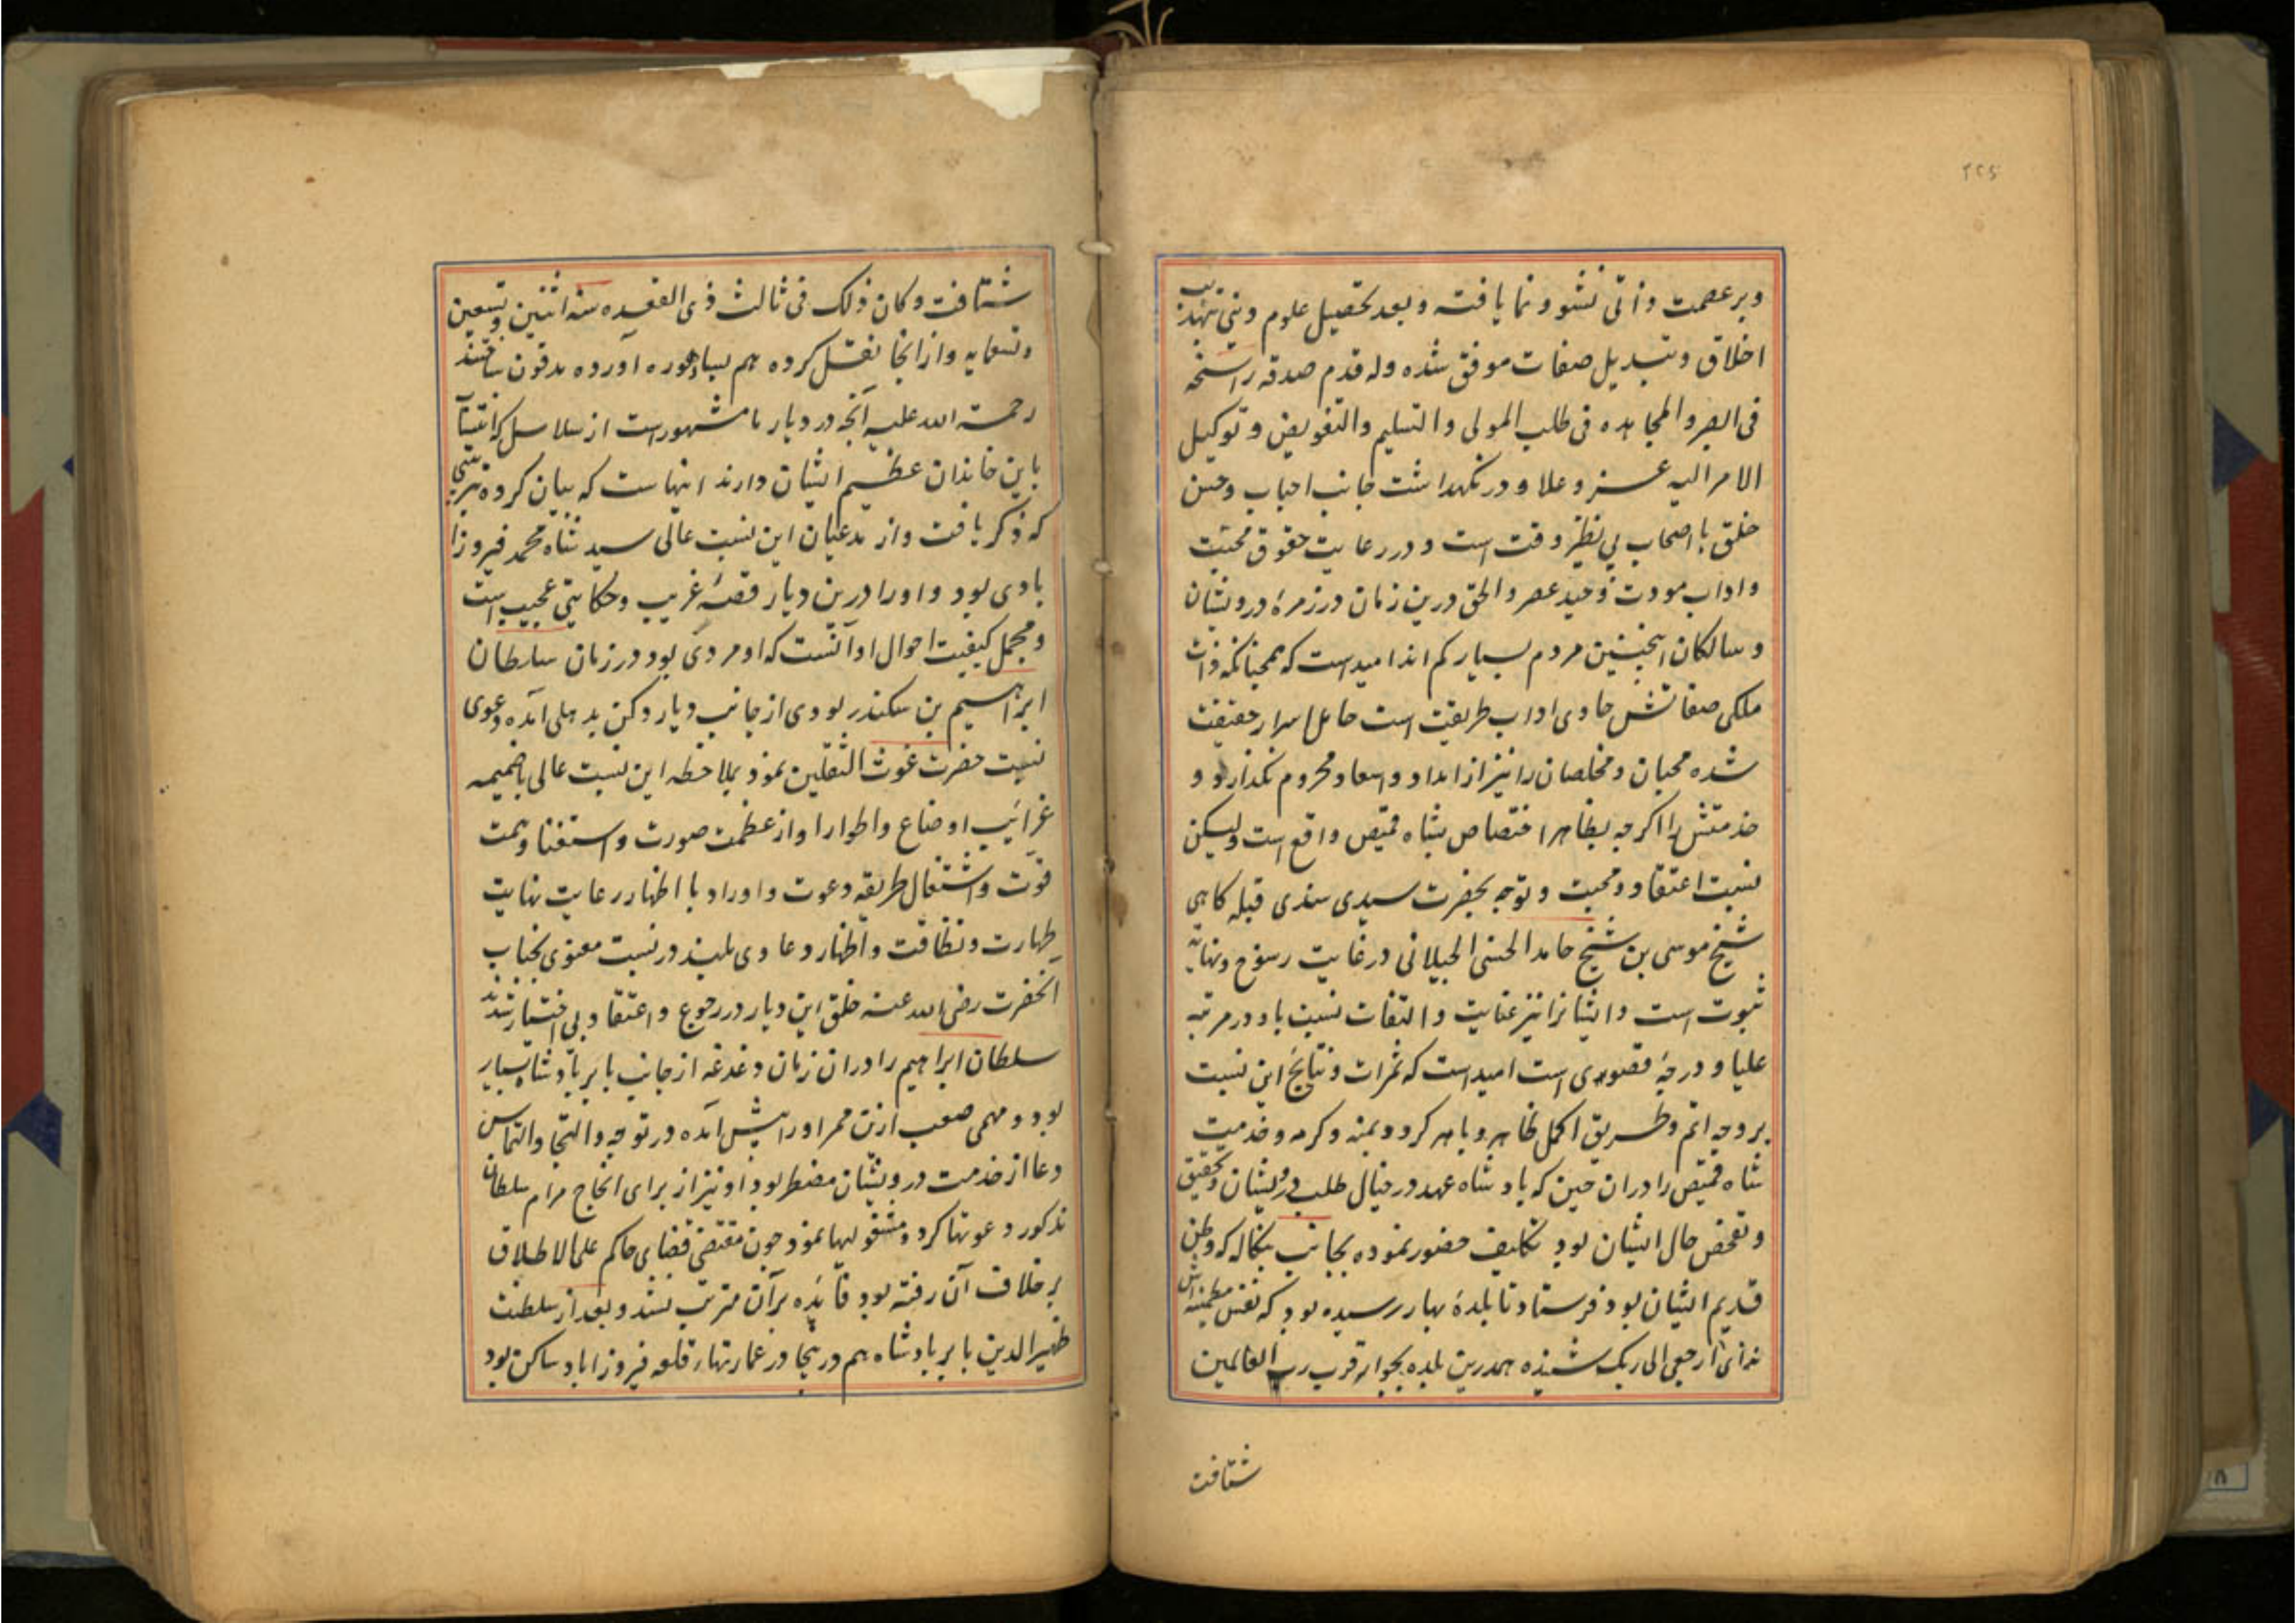 ٢٢٥
وبر عصمت ذاتی نشو و نما یافته و بعد تحصیل علوم دینی تهذیب
اخلاق و تبدیل صفات موفق شده وله قدم صدقه راسخه
فی الصبر والمجاهده فی طلب المولی والتسلیم والتفویض و توکیل
الامر الیه عز و علا و در نکهداشت جانب احباب و حسن
خلق با اصحاب بی نظیر وقت است و در رعایت حقوق محبت
واداب مودت وحید عصر والحق درین زمان در زمرهٔ درویشان
و سالکان اینچنین مردم بسیار کم اند امید است که همچنانکه ذات
ملکی صفاتش حاوی اداب طریقت است حامل اسرار حقیقت
شده محبان و مخلصان را نیز از امداد و اسعاد محروم نکذارد و
خدمتش را اکرچه بظاهر اختصاص بشاه قمیص واقع است ولیکن
نسبت اعتقاد و محبت و توجه بحضرت سیدی سندی قبله کاهی
شیخ موسی بن شیخ حامد الحسنی الجیلانی در غایت رسوخ و نهایه
ثبوت است و ایشانرا نیز عنایت و التفات نسبت باو در مرتبه
علیا و درجهٔ قصوی است امید است که ثمرات و نتایج این نسبت
بر وجه اتم و طریق اکمل ظاهر و باهر کردد بمنه و کرمه و خدمت
شاه قمیص را دران حین که بادشاه عهد در خیال طلب درویشان و تحقیق
و تفحص حال ایشان بود تکلیف حضور نموده بجانب بنکاله که وطن
قدیم ایشان بود فرستاد تا بلدهٔ بهار رسیده بود که نفس مطمئنه اش
ندای ارجعی الی ربک شنیده همدرین بلده بجوار قرب رب العالمین
شتافت
شتافت وکان ذلک فی ثالث ذی القعده سنه اثنین وتسعین
وتسعمایه و از انجا نقل کرده هم بسادهوره آورده مدفون ساختند
رحمة الله علیه آنچه در دیار ما مشهور است از سلاسل که انتساب
باین خاندان عظیم الشان دارند اینهاست که بیان کرده ترتیبی
که ذکر یافت و از مدعیان این نسبت عالی سید شاه محمد فیروزا
بادی بود و او را درین دیار قصهٔ غریب و حکایتی عجیب است
و مجمل کیفیت احوال او آنست که او مردی بود در زمان سلطان
ابراهیم بن سکندر لودی از جانب دیار دکن بدهلی آمده دعوی
نسبت حضرت غوث الثقلین نمود بملاحظه این نسبت عالی باضمیمه
غرائب اوضاع و اطوار او از عظمت صورت و استغنا و همت
قوت و اشتغال طریقه دعوت و اوراد با اظهار رعایت نهایت
طهارت و نظافت و اظهار دعاوی بلند در نسبت معنوی بجناب
آنحضرت رضی الله عنه خلق این دیار در رجوع و اعتقاد بی اختیار شدند
سلطان ابراهیم را دران زمان دغدغه از جانب بابر بادشاه بسیار
بود و مهمی صعب ازین ممر او را پیش آمده در توجه و التجا و التماس
دعا از خدمت درویشان مضطر بود او نیز از برای انجاح مرام سلطان
مذکور دعوتها کرد و مشغولیها نمود چون مقتضی قضای حاکم علی الاطلاق
بر خلاف آن رفته بود فائده برآن مترتب نشد و بعد از سلطنت
ظهیر الدین بابر بادشاه هم درینجا در عمارتهار قلعه فیروزاباد ساکن بود